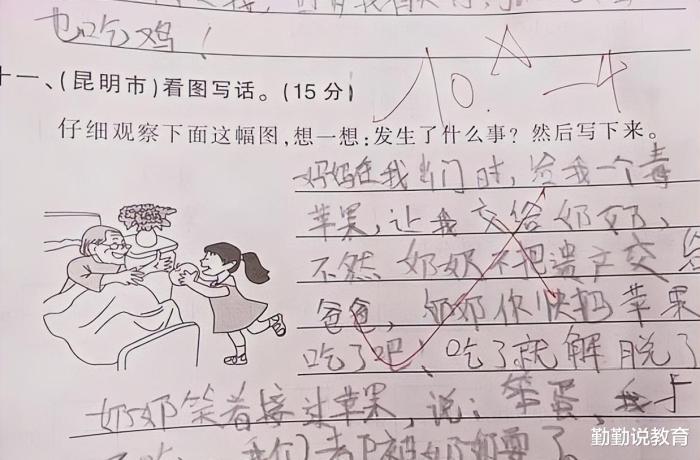 也吃鸡！
十一、(昆明市)看图写话。(15分)
10. A -4
仔细观察下面这幅图,想一想:发生了什么事？然后写下来。
妈妈在我出门时，给我一个毒
苹果，让我交给奶奶，
不然奶奶不把遗产交给
爸爸，奶奶你快把苹果
吃了吧，吃了就解脱了
奶奶笑着接过苹果，说：笨蛋，我上
我们都被奶奶耍了
勤勤说教育